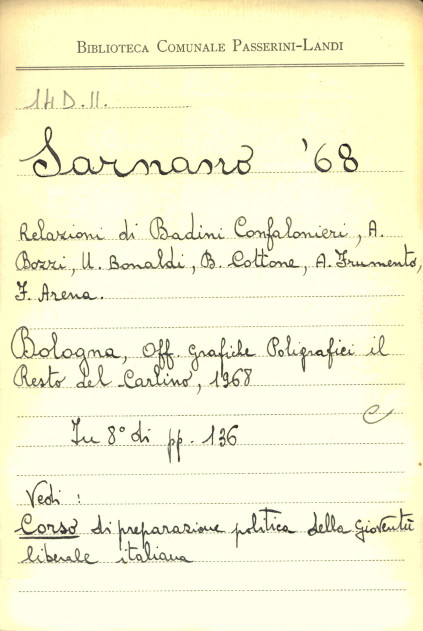 BIBLIOTECA COMUNALE PASSERINI-LANDI
14 D. 11.
Sarnano '68
Relazioni di Badini Confalonieri, A.
Bozzi, U. Bonaldi, B. Cottone, A. Frumento,
F. Arena.
Bologna, Off. Grafiche Poligrafici il
Resto del Carlino, 1968
C
In 8° di pp. 136
Vedi :
Corso di preparazione politica della Gioventù
liberale italiana